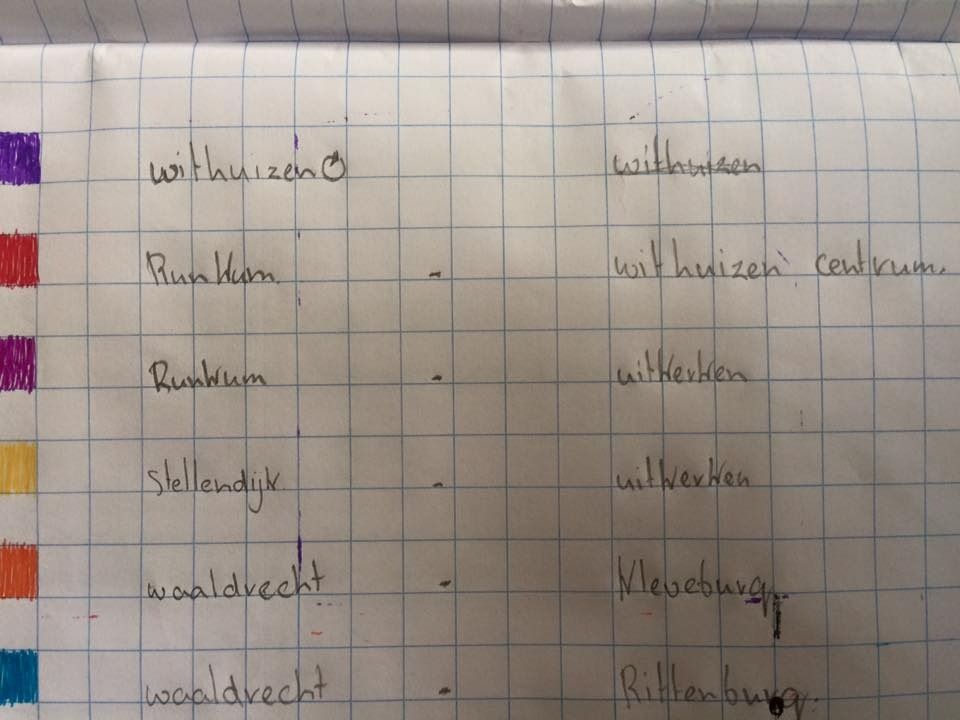 withuizen withuizen
Runkum - withuizen centrum.
Runkum - uitkerken
Stellendijk - uitkerken
waaldrecht - Kleveburg
waaldrecht - Rittenburg.